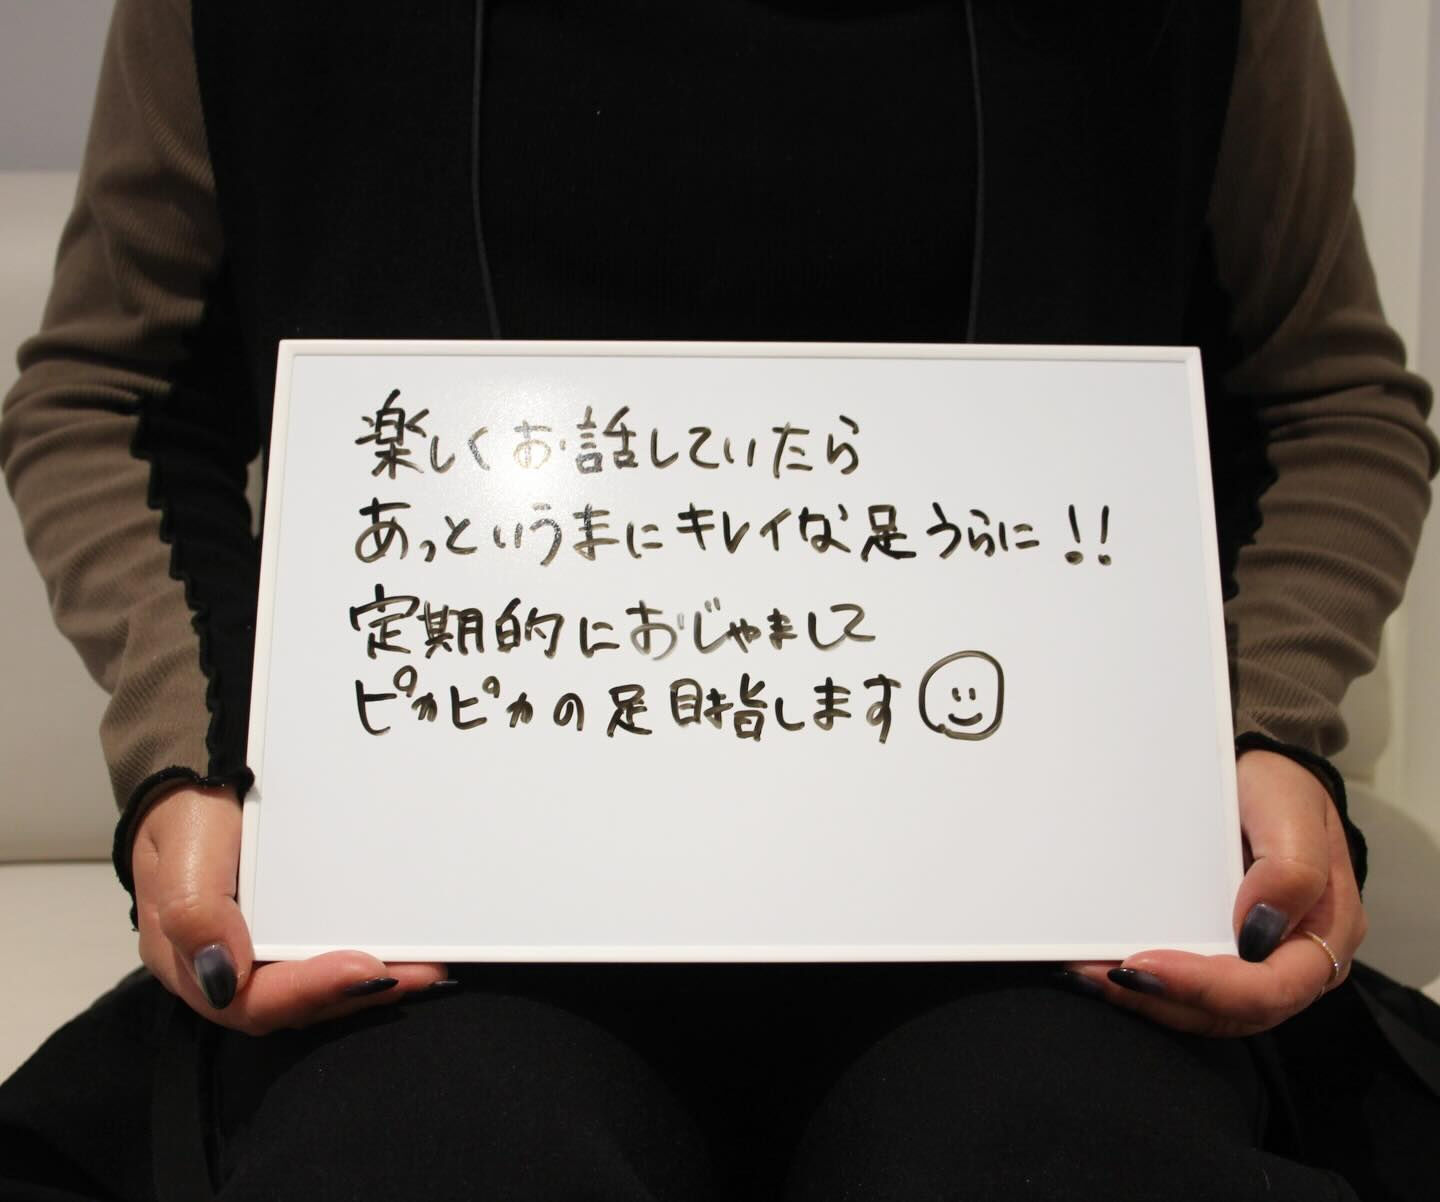 楽しくお話していたら
あっというまにキレイな足うらに!!
定期的におじゃまして
ピカピカの足目指します